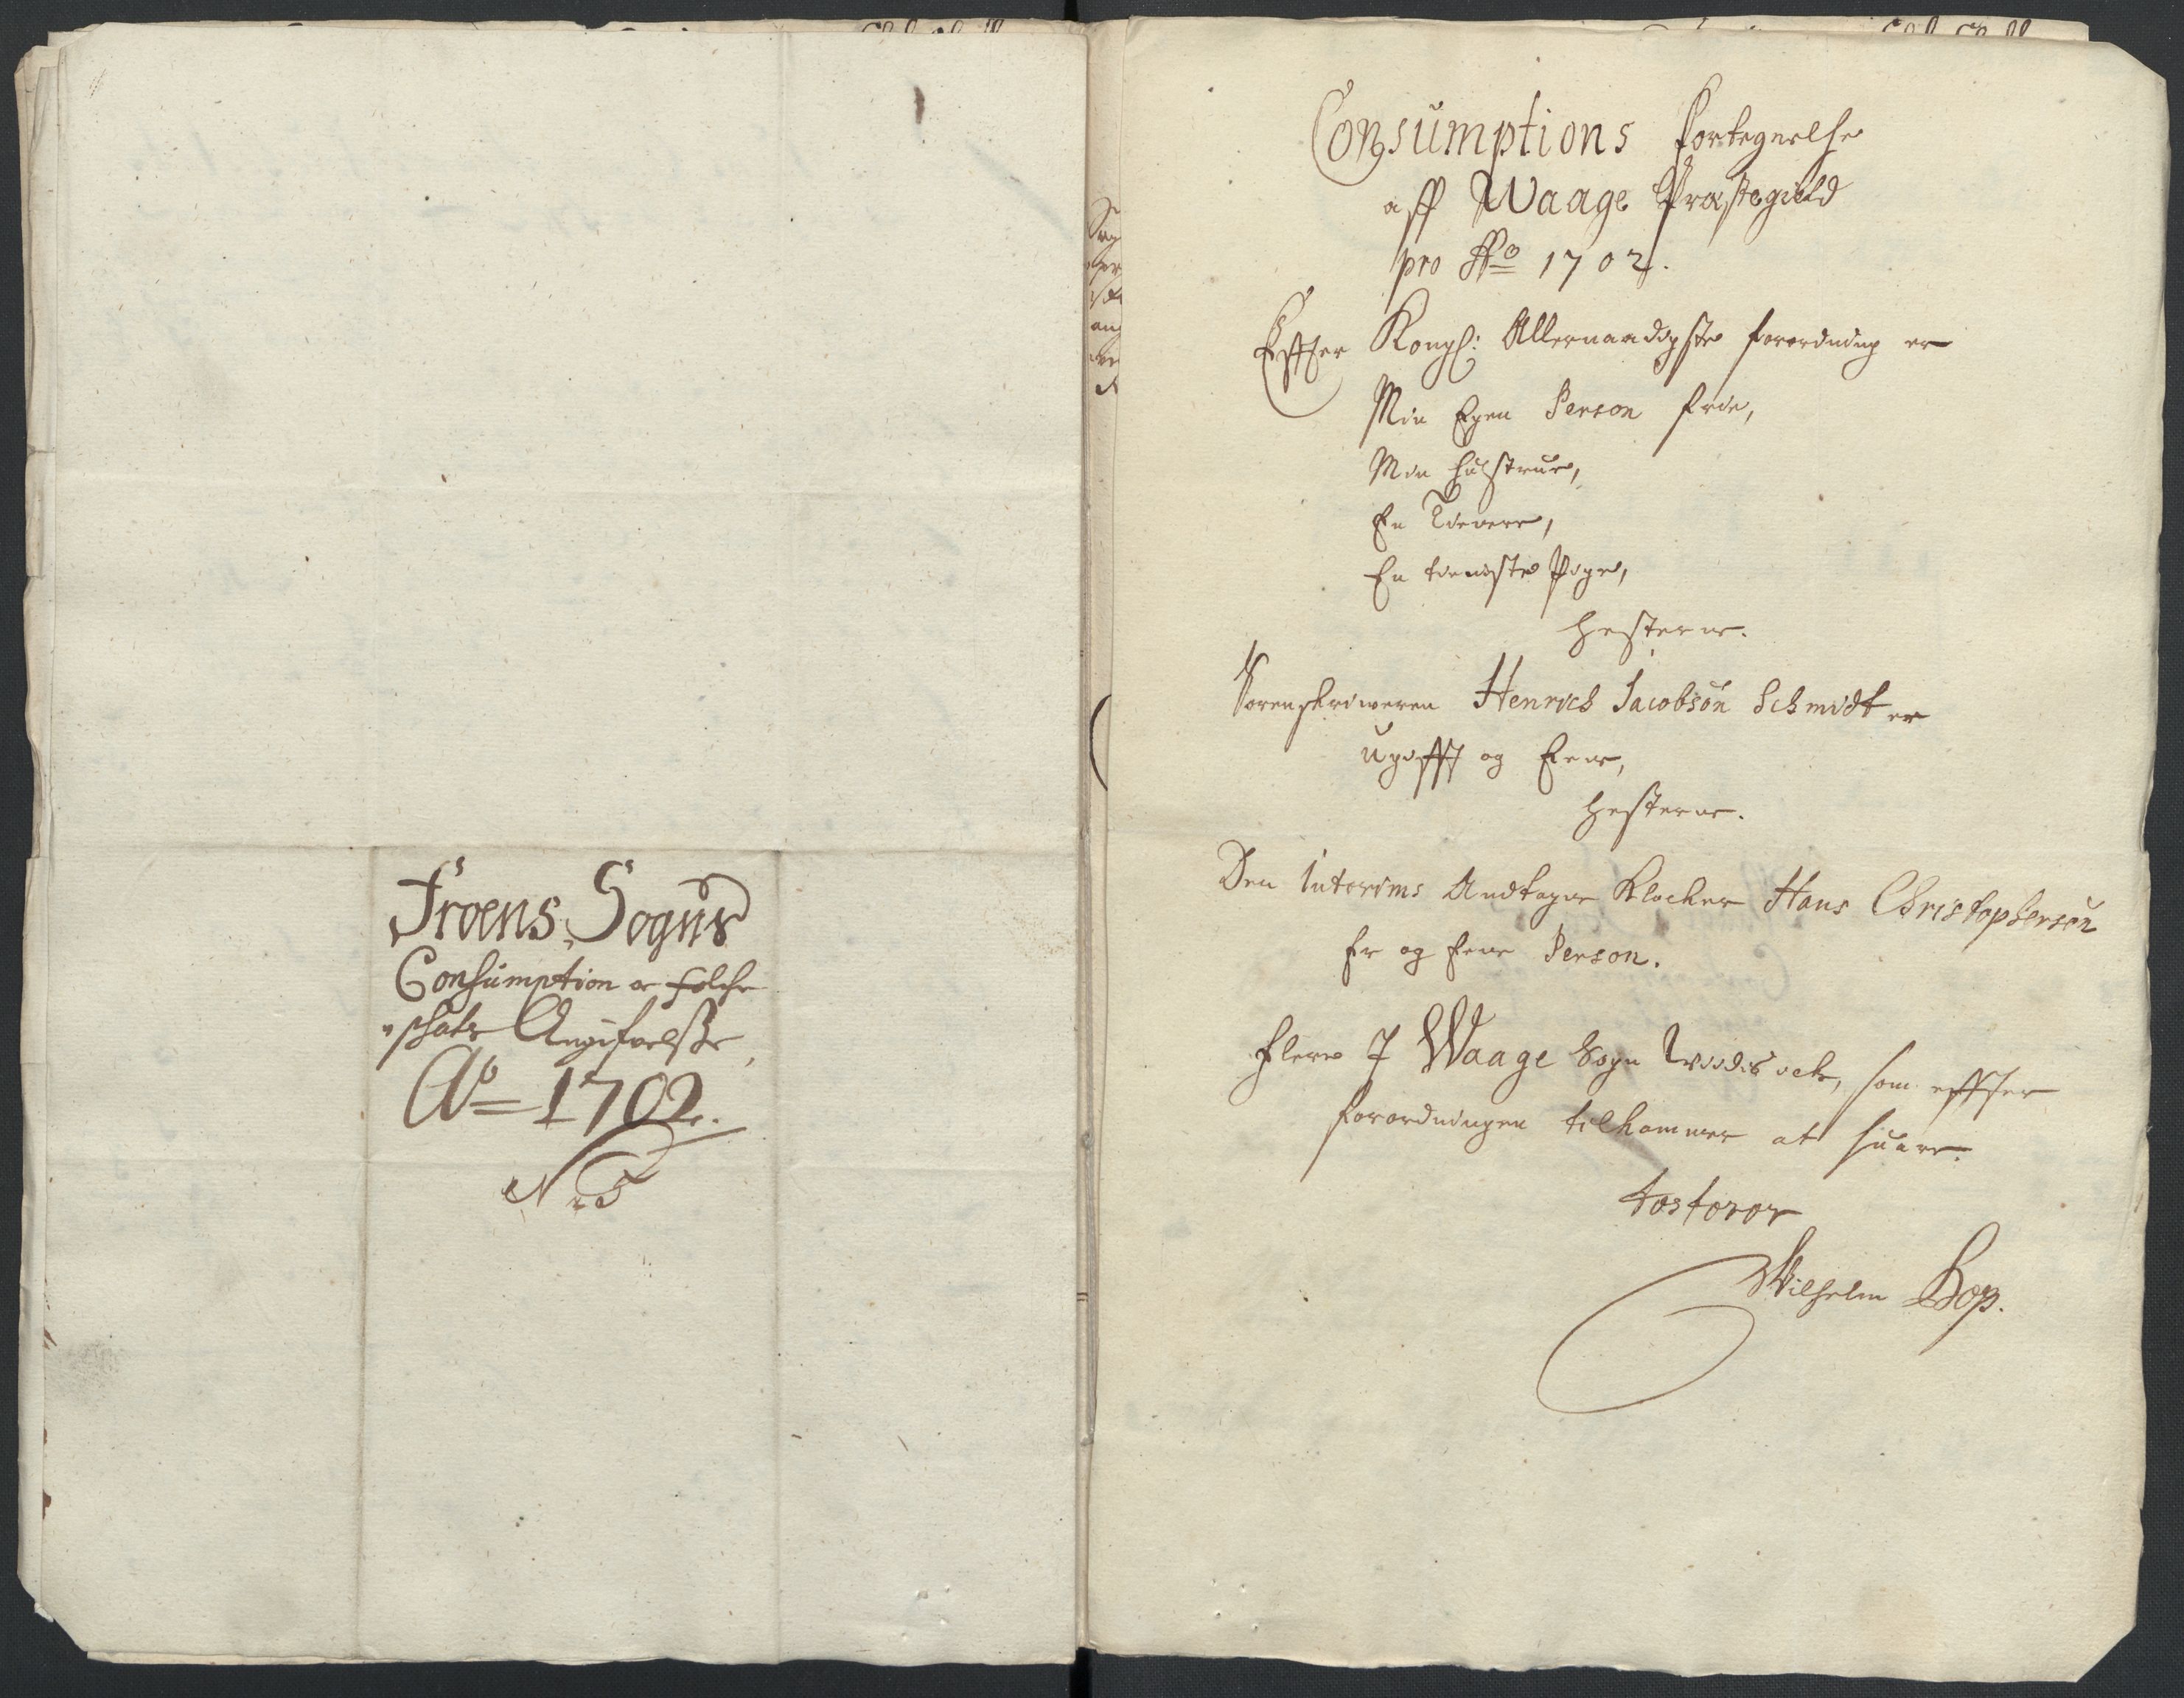 Froens Sogns
Consumption oc folche
schatz Angifvelsse
Ao 1702.
N: 5
Consumptions fortegnelse
aff Waage Præstegield
pro Ao 1702.
Effter Kongl: Allernaadigste forordning er
Min Egen Person frie,
Min hustrue,
En Tienere,
En tieniste Pige,
hesterne.
Sorenskriweren Henrich Jacobsøn Schmidt er
ugifft og Eene,
hesterne.
Den Interims Andtagne Klocker Hans Christophersøn
Er og Eene Person.
Flere J Waage Sogn Weedis ick, som effter
forordningen tilkommer at suare.
testerer
Wilhelm